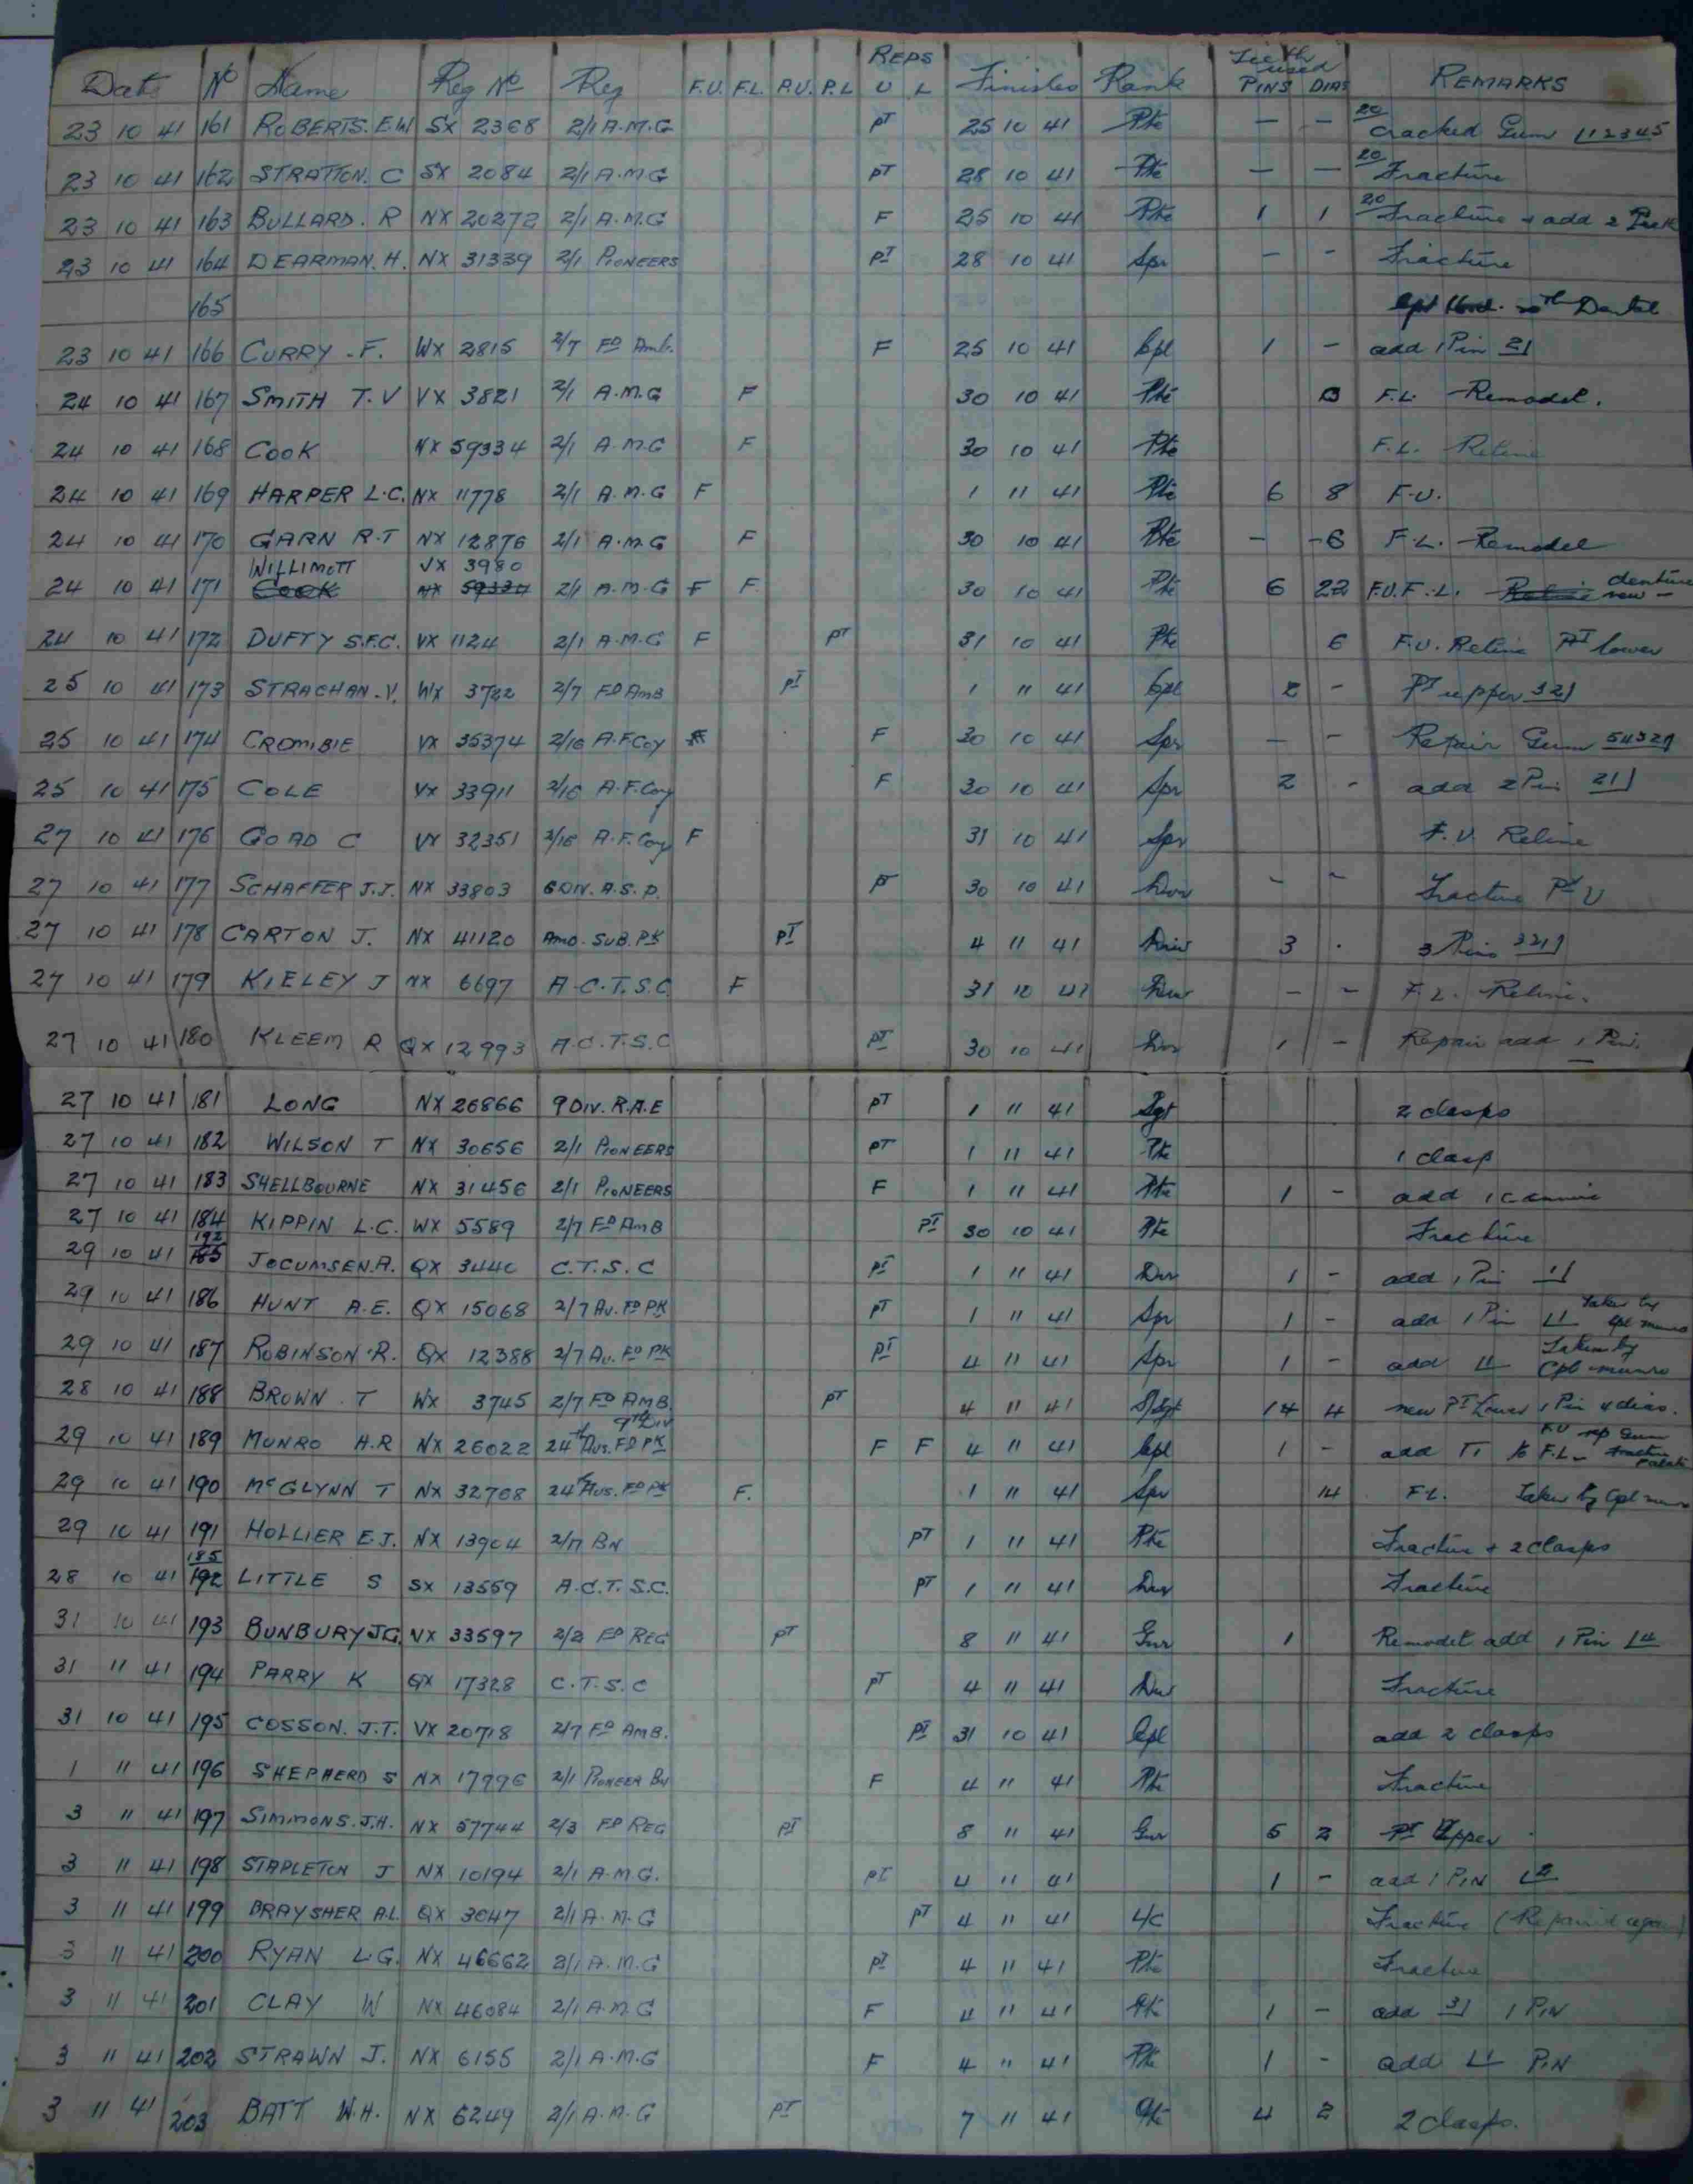 REPS Teeth used
Date No Name Reg No Reg F.U. F.L. P.U. P.L U L Finished Rank PINS DIAS REMARKS
23 10 41 161 ROBERTS. E.W SX 2368 2/1 A.M.G PT 25 10 41 Pte — — 20 Cracked Gum 12345
23 10 41 162 STRATTON. C SX 2084 2/1 A.M.G PT 28 10 41 Pte — — 20 Fracture
23 10 41 163 BULLARD. R NX 20272 2/1 A.M.G F 25 10 41 Pte 1 1 20 Fracture + add 2 Teeth
23 10 41 164 DEARMAN. H. NX 31339 2/1 PIONEERS PT 28 10 41 Spr - - Fracture
165 Dental
23 10 41 166 CURRY - F. WX 2815 2/7 FD Amb. F 25 10 41 Cpl 1 - add 1 Pin 2|
24 10 41 167 SMITH T. V VX 3821 2/1 A.M.G F 30 10 41 Pte F.L. Remodel.
24 10 41 168 COOK NX 59334 2/1 A.M.G F 30 10 41 Pte F.L. Reline
24 10 41 169 HARPER L.C. NX 11778 2/1 A.M.G F 1 11 41 Pte 6 8 F.U.
24 10 41 170 GARN R.T NX 12876 2/1 A.M.G F 30 10 41 Pte - -6 F.L. Remodel
WILLIMOTT VX 3980
24 10 41 171 COOK NX 59334 2/1 A.M.G F F 30 10 41 Pte 6 22 F.U.F.L. Reline denture new -
24 10 41 172 DUFTY S.F.C. VX 1124 2/1 A.M.G F PT 31 10 41 Pte 6 F.U. Reline PT lower
25 10 41 173 STRACHAN. V. WX 3722 2/7 FD AMB PT 1 11 41 Cpl 2 - PT upper 32|
25 10 41 174 CROMBIE VX 35374 2/16 A.F.COY F 30 10 41 Spr — - Repair Gum 54321
25 10 41 175 COLE VX 33911 2/16 A.F.Coy F 30 10 41 Spr 2 - add 2 Pin 21|
27 10 41 176 GOAD C VX 32351 2/16 A.F.Coy F 31 10 41 Spr F.U. Reline
27 10 41 177 SCHAFFER J.J. NX 33803 6 DIV. A.S.P. PT 30 10 41 Dvr - - Fracture PT U
27 10 41 178 CARTON J. NX 41120 AMO. SUB. PK PT 4 11 41 Driv 3 . 3 Pins 321|
27 10 41 179 KIELEY J NX 6697 A.C.T.S.C. F 31 10 41 Dvr - - F.L. Reline.
27 10 41 180 KLEEM R QX 12993 A.C.T.S.C PT 30 10 41 Dvr 1 - Repair add 1 Pin.
27 10 41 181 LONG NX 26866 9 DIV. R.A.E PT 1 11 41 Sgt 2 clasps
27 10 41 182 WILSON T NX 30656 2/1 PIONEERS PT 1 11 41 Pte 1 clasp
27 10 41 183 SHELLBOURNE NX 31456 2/1 PIONEERS F 1 11 41 Pte 1 - add 1 canine
27 10 41 184 KIPPIN L.C. WX 5589 2/7 FD AMB PT 30 10 41 Pte Fracture
192
29 10 41 185 JOCUMSEN. A. QX 3440 C.T.S.C PT 1 11 41 Dvr 1 - add 1 Pin 1|
29 10 41 186 HUNT A.E. QX 15068 2/7 AU. FD PK PT 1 11 41 Spr 1 - add 1 Pin |1 Taken by Cpl Munro
29 10 41 187 ROBINSON. R. QX 12388 2/7 AU. FD PK PT 4 11 41 Spr 1 - add |1 Taken by Cpl Munro
28 10 41 188 BROWN. T WX 3745 2/7 FD AMB. PT 4 11 41 S/Sgt 14 4 new PT Lower 1 Pin 4 dias.
9th DIV
29 10 41 189 MUNRO H.R NX 26022 24th Aus. FD PK F F 4 11 41 Cpl 1 - add to F.L. F.U rep Gum fracture palate
29 10 41 190 McGLYNN T NX 32708 24th Aus. FD PK F. 1 11 41 Spr 14 F.L. Taken by Cpl Munro
29 10 41 191 HOLLIER E.J. NX 13904 2/17 BN PT 1 11 41 Pte Fracture + 2 Clasps
185
28 10 41 192 LITTLE S SX 13559 A.C.T.S.C. PT 1 11 41 Dvr Fracture
31 10 41 193 BUNBURY J.G. VX 33597 2/2 FD REG PT 8 11 41 Gnr 1 Remodel add 1 Pin |4
31 11 41 194 PARRY K QX 17328 C.T.S.C PT 4 11 41 Dvr Fracture
31 10 41 195 COSSON. J.T. VX 20718 2/7 FD AMB. PT 31 10 41 Cpl add 2 clasps
1 11 41 196 SHEPHERD S NX 17996 2/1 PIONEER BN F 4 11 41 Pte Fracture
3 11 41 197 SIMMONS. J.H. NX 57744 2/3 FD REG PT 8 11 41 Gnr 5 2 PT Upper
3 11 41 198 STAPLETON J NX 10194 2/1 A.M.G. PT 4 11 41 1 - add 1 PIN |2
3 11 41 199 BRAYSHER A.L. QX 3047 2/1 A.M.G PT 4 11 41 L/C Fracture (Repaired again)
3 11 41 200 RYAN L.G. NX 46662 2/1 A.M.G PT 4 11 41 Pte Fracture
3 11 41 201 CLAY W NX 46084 2/1 A.M.G F 4 11 41 Pte 1 - add 3| 1 PIN
3 11 41 202 STRAWN J. NX 6155 2/1 A.M.G F 4 11 41 Pte 1 - add |1 PIN
3 11 41 203 BATT W.H. NX 6249 2/1 A.M.G PT 7 11 41 Pte 4 2 2 clasps.